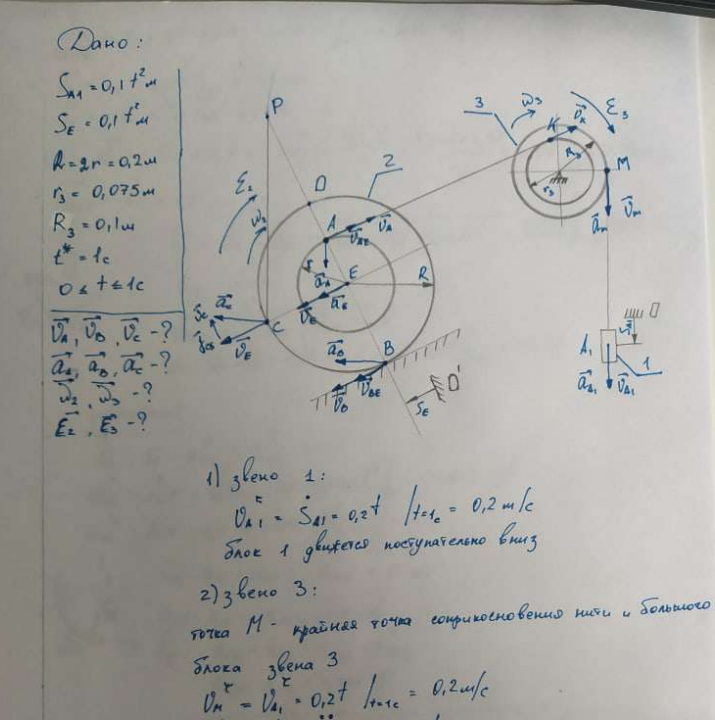 Дано:
S_A1 = 0,1 t² м
S_E = 0,1 t² м
R = 2r = 0,2 м
r₃ = 0,075 м
R₃ = 0,1 м
t* = 1 с
0 ≤ t ≤ 1 с
V̄_A, V̄_B, V̄_C - ?
ā_A, ā_B, ā_C - ?
ω̄₂, ω̄₃ - ?
ε̄₂, ε̄₃ - ?
P
D
2
ε₂
ω₂
A
V̄_A
V̄_AE
ā_A
r
E
R
ā_E
V̄_E
C
ā_C
V̄_C
V̄_E
B
ā_B
V̄_B
V̄_BE
S_E
O'
3
ω₃
ε₃
K
V̄_K
R₃
r₃
M
ā_M
V̄_M
O
A₁
1
ā_A1
V̄_A1
1) звено 1:
V_A1^τ = Ṡ_A1 = 0,2 t |t=1c = 0,2 м/с
блок 1 движется поступательно вниз
2) звено 3:
точка M - крайняя точка соприкосновения нити и большого
блока звена 3
V_M^τ = V_A1^τ = 0,2 t |t=1c = 0,2 м/с